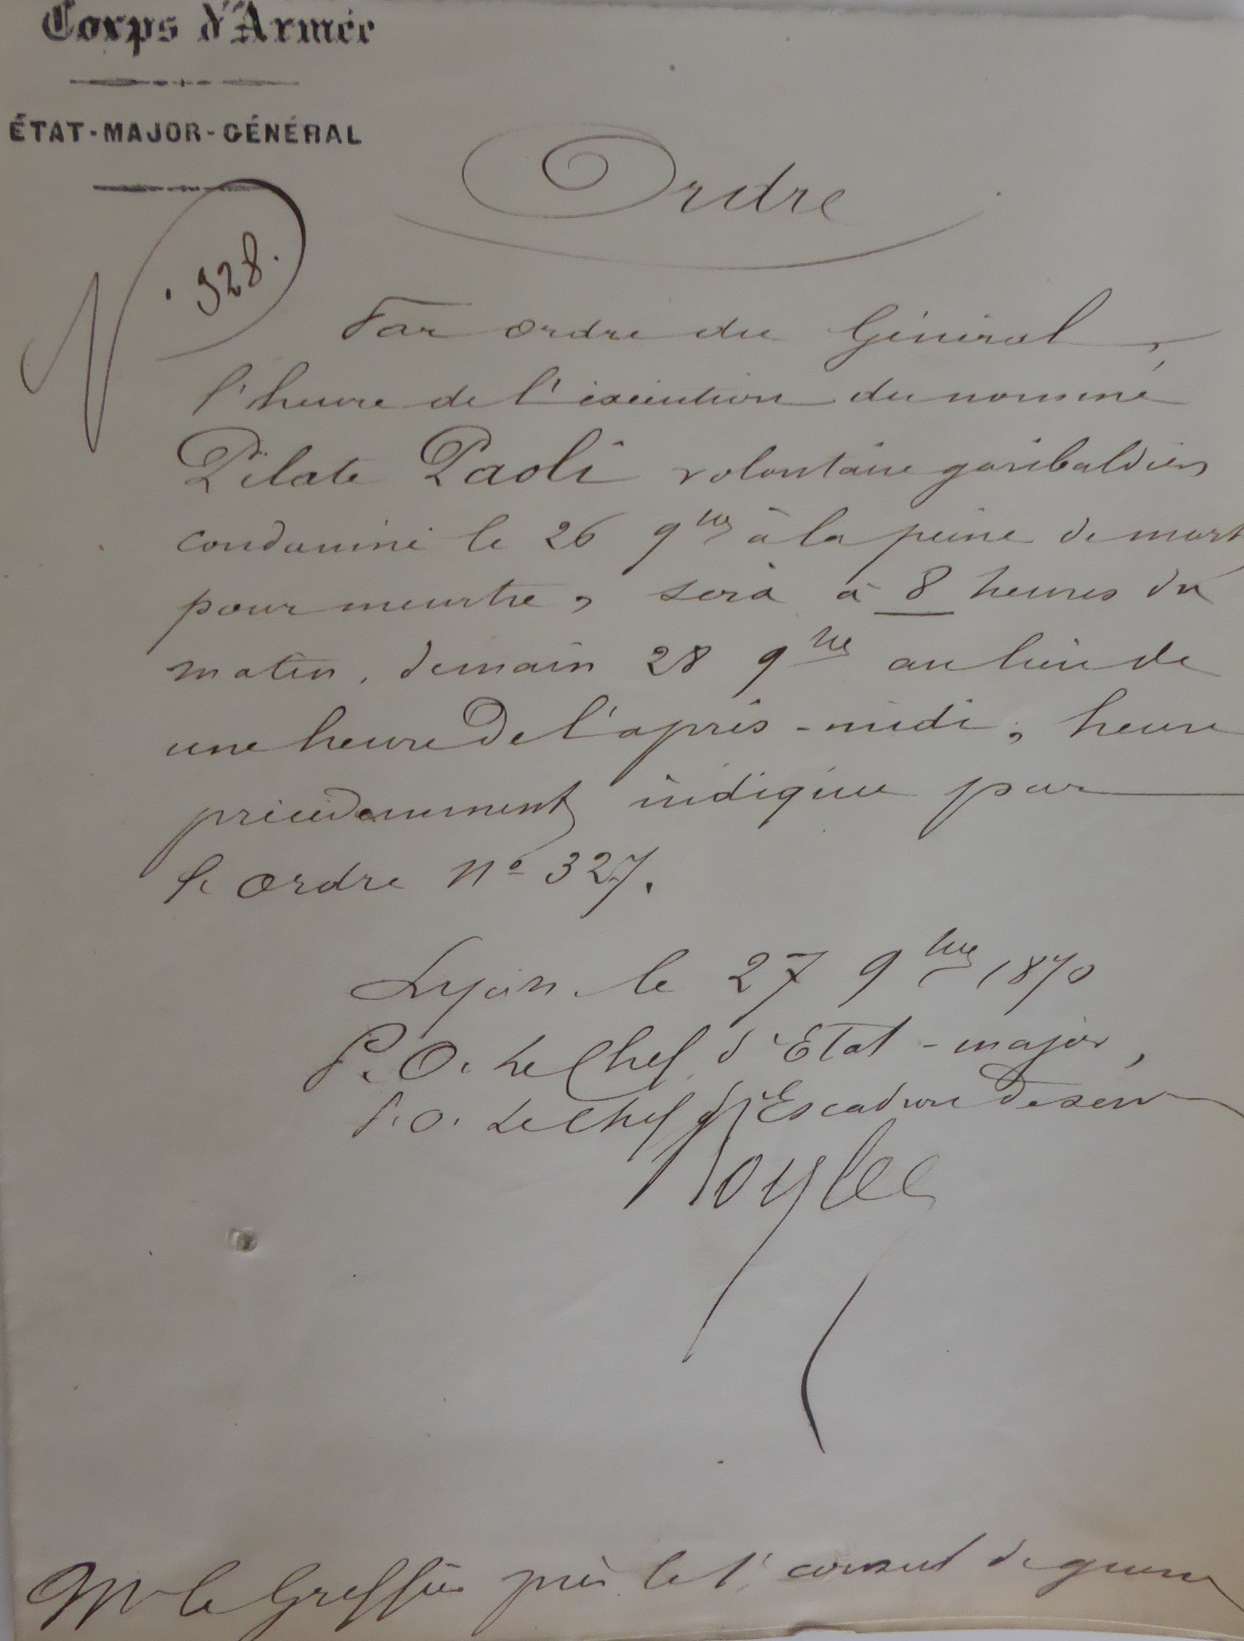 Corps d'Armée
ÉTAT-MAJOR-GÉNÉRAL
Ordre
N° 328.
Par ordre du Général,
l'heure de l'exécution du nommé
Pilate Paoli volontaire garibaldien
condamné le 26 9bre à la peine de mort
pour meurtre, sera à 8 heures du
matin, demain 28 9bre au lieu de
une heure de l'après-midi, heure
précédemment indiquée par
le ordre No 327.
Lyon le 27 9bre 1870
P. O. Le Chef d'Etat-major,
P. O. Le Chef d'Escadron de serv
Mr le Greffier près le 1er conseil de guerre